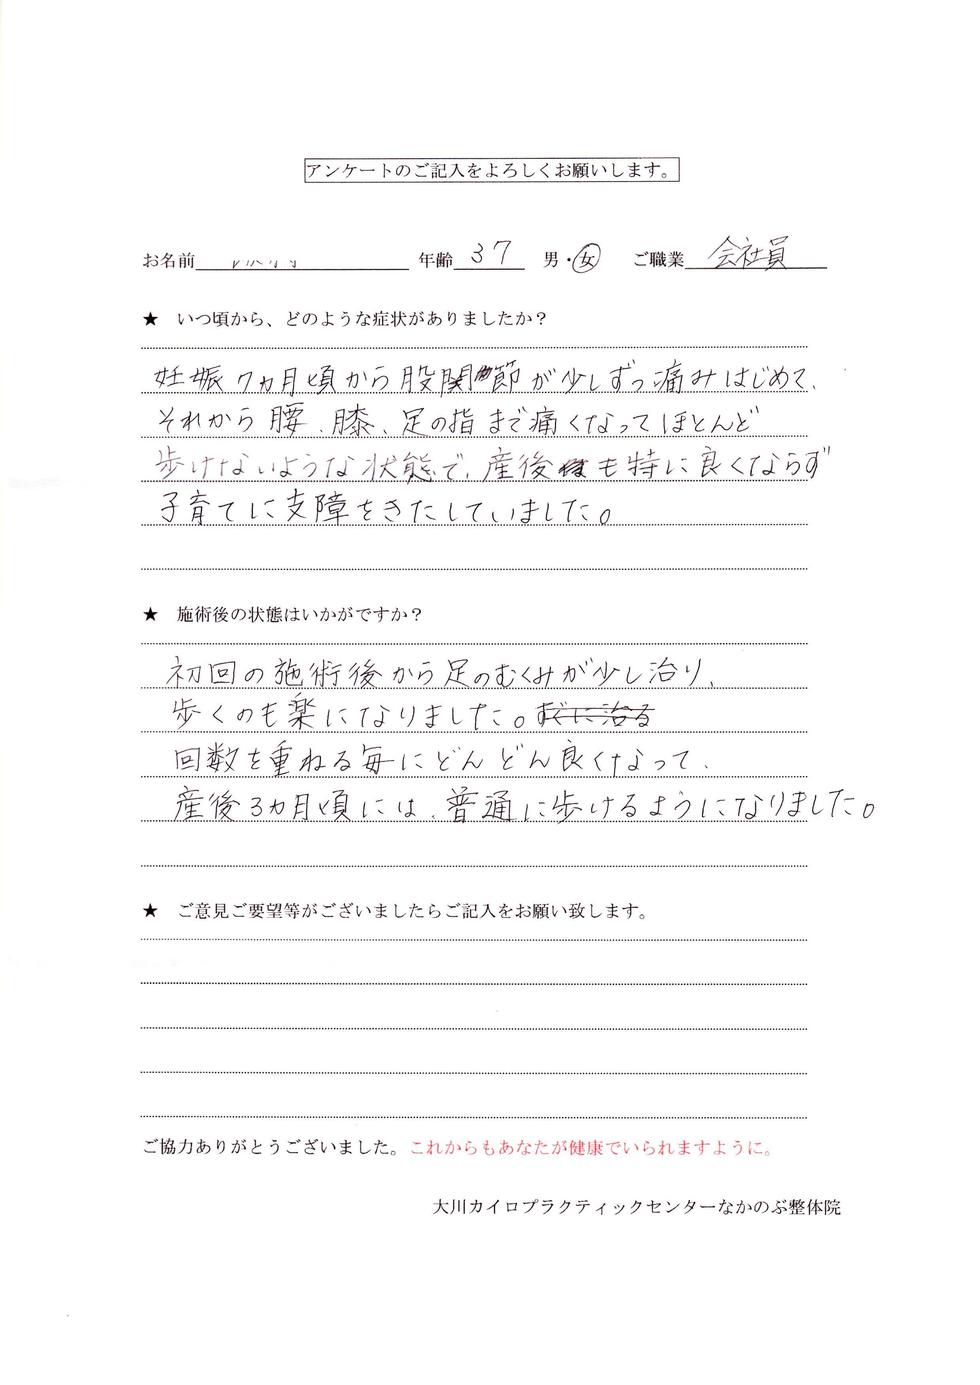 アンケートのご記入をよろしくお願いします。
お名前 年齢 37 男・女 ご職業 会社員
★ いつ頃から、どのような症状がありましたか？
妊娠7ヵ月頃から股関節が少しずつ痛みはじめて、
それから腰、膝、足の指まで痛くなってほとんど
歩けないような状態で、産後も特に良くならず
子育てに支障をきたしていました。
★ 施術後の状態はいかがですか？
初回の施術後から足のむくみが少し治り、
歩くのも楽になりました。すぐに治る
回数を重ねる毎にどんどん良くなって、
産後3ヵ月頃には、普通に歩けるようになりました。
★ ご意見ご要望等がございましたらご記入をお願い致します。
ご協力ありがとうございました。これからもあなたが健康でいられますように。
大川カイロプラクティックセンターなかのぶ整体院